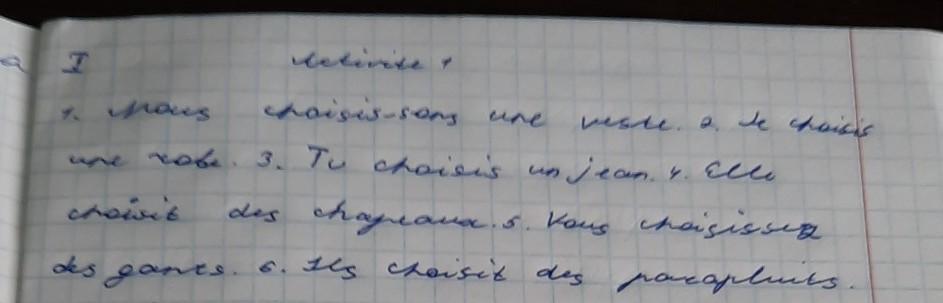 a I Activité 1
1. Nous choisis-sons une veste. 2. Je choisis
une robe. 3. Tu choisis un jean. 4. Elle
choisit des chapeaux. 5. Vous choisissez
des gants. 6. Ils choisit des parapluies.